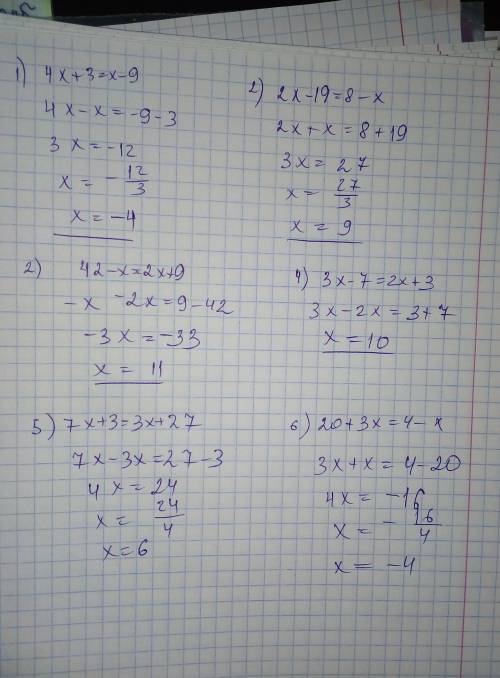 1) 4x+3=x-9
4x-x=-9-3
3x=-12
x=-12/3
x=-4
2) 2x-19=8-x
2x+x=8+19
3x=27
x=27/3
x=9
2) 42-x=2x+9
-x -2x=9-42
-3x=-33
x=11
4) 3x-7=2x+3
3x-2x=3+7
x=10
5) 7x+3=3x+27
7x-3x=27-3
4x=24
x=24/4
x=6
6) 20+3x=4-x
3x+x=4-20
4x=-16
x=-16/4
x=-4